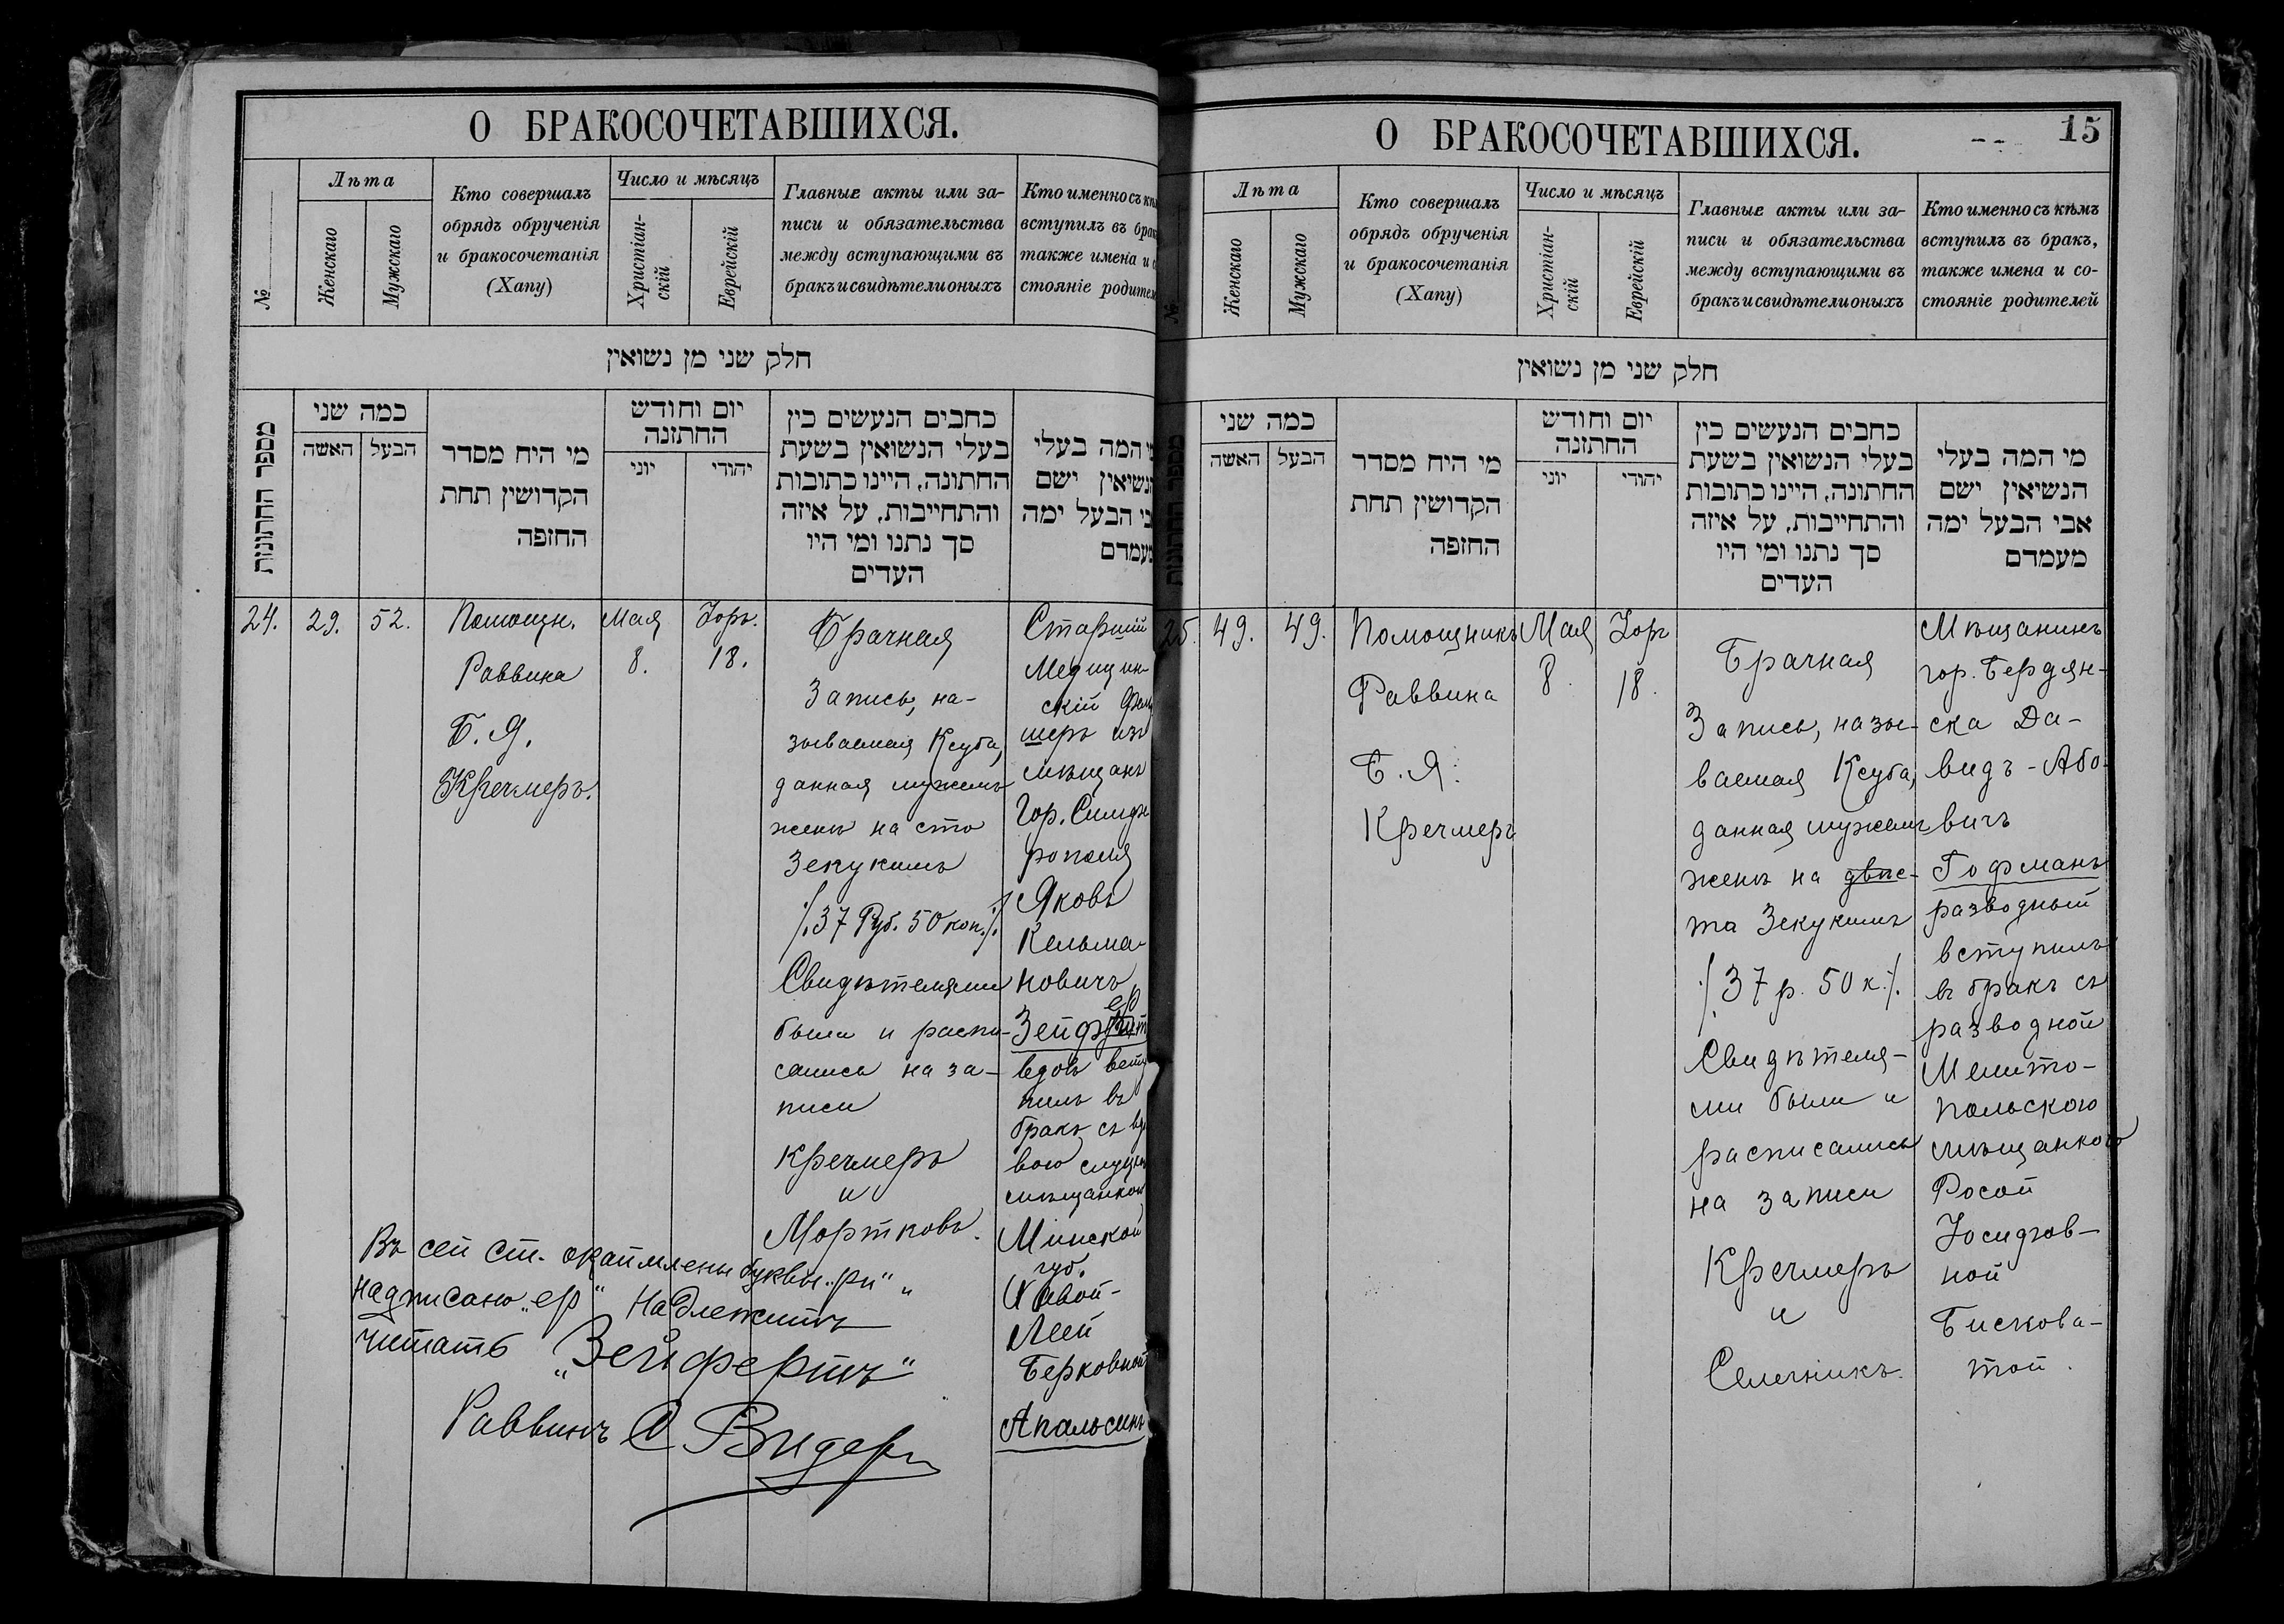 О БРАКОСОЧЕТАВШИХСЯ.
№
Лѣта
Женскаго
Мужскаго
Кто совершалъ
обрядъ обрученія
и бракосочетанія
(Хапу)
Число и мѣсяцъ
Христіан-
скій
Еврейскій
Главные акты или за-
писи и обязательства
между вступающими въ
бракъ и свидѣтели оныхъ
Кто именно съ
вступилъ въ
также имена и
стояніе
חלק שני מן נשואין
מספר החתונות
כמה שני
האשה
הבעל
מי היח מסדר
הקדושין תחת
החזפה
יום וחודש
החתזנה
יוני
יהודי
כחבים הנעשים כין
בעלי הנשואין בשעת
החתונה, היינו כתובות
והתחייבות, על איזה
סך נתנו ומי היו
העדים
המה בעלי
ישם
הבעל ימה
24.
29.
52.
Помощн.
Раввина
Б. Я.
Кречмеръ.
Мая
8.
Іоръ.
18.
Брачная
Запись, на-
зываемая Ксуба,
данная мужемъ
женѣ на сто
Зекукимъ
/.37 Руб. 50 коп./.
Свидѣтелями
были и распи-
сались на за-
писи
Кречмеръ
и
Мортковъ.
Старшій
Медицин-
скій
шеръ изъ
мѣщанъ
Гор.
рополя
Яковъ
Кельма-
новичъ
ер
вдов
пилъ въ
бракъ съ
вою
мѣщанкой
Минской
губ.
Лей
Берковной
Апальсинъ
Въ сей ст. окаймлены буквы „ри"
надписано „ер" Надлежитъ
читать „Зейфертъ"
Раввинъ С Видеръ
О БРАКОСОЧЕТАВШИХСЯ.
15
№
Лѣта
Женскаго
Мужскаго
Кто совершалъ
обрядъ обрученія
и бракосочетанія
(Хапу)
Число и мѣсяцъ
Христіан-
скій
Еврейскій
Главные акты или за-
писи и обязательства
между вступающими въ
бракъ и свидѣтели оныхъ
Кто именно съ кѣмъ
вступилъ въ бракъ,
также имена и со-
стояніе родителей
חלק שני מן נשואין
כמה שני
האשה
הבעל
מי היח מסדר
הקדושין תחת
החזפה
יום וחודש
החתזנה
יוני
יהודי
כחבים הנעשים כין
בעלי הנשואין בשעת
החתונה, היינו כתובות
והתחייבות, על איזה
סך נתנו ומי היו
העדים
מי המה בעלי
הנשיאין ישם
אבי הבעל ימה
מעמדם
25.
49.
49.
Помощникъ
Раввина
Б. Я.
Кречмеръ
Мая
8.
Іор
18.
Брачная
Запись, назы-
ваемая Ксуба,
данная мужемъ
женѣ на двѣс-
та Зекукимъ
/.37 р. 50 к./.
Свидѣтеля-
ми были и
расписались
на записи
Кречмеръ
и
Селечникъ.
Мѣщанинъ
гор. Бердян-
ска Да-
видъ-Або-
вичъ
Гофманъ
разводный
вступилъ
въ бракъ съ
разводной
Мелито-
польскою
мѣщанкою
Росой
Іосифов-
ной
Бискова-
той.